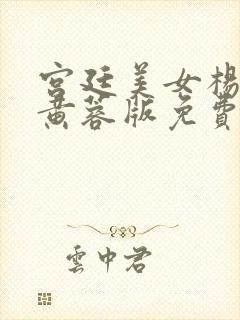 宫廷美女杨
黄蓉版免费
雲中君